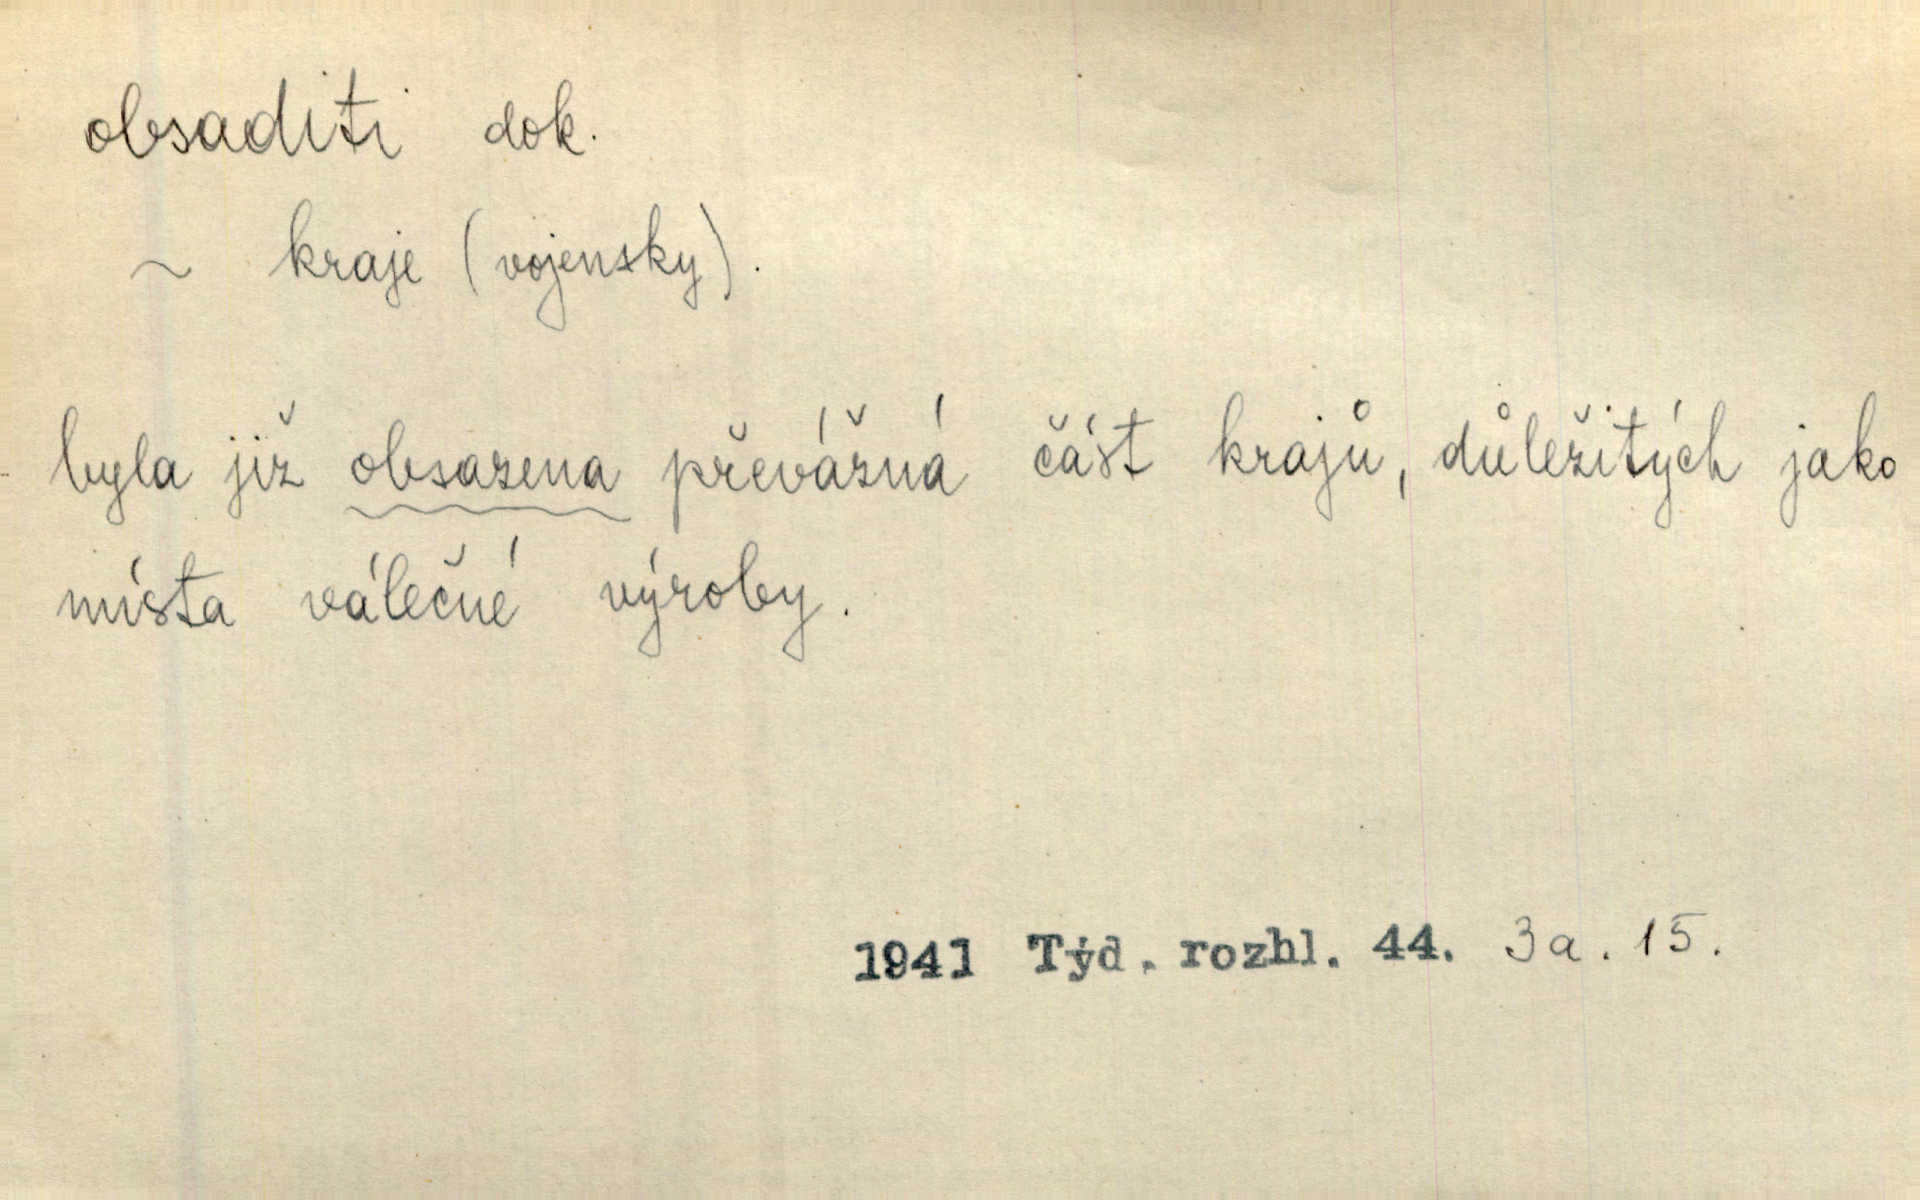 obsaditi dok.
~ kraje (vojensky).
byla již obsazena převážná část krajů, důležitých jako
místa válečné výroby.
1941 Týd. rozhl. 44. 3a. 15.